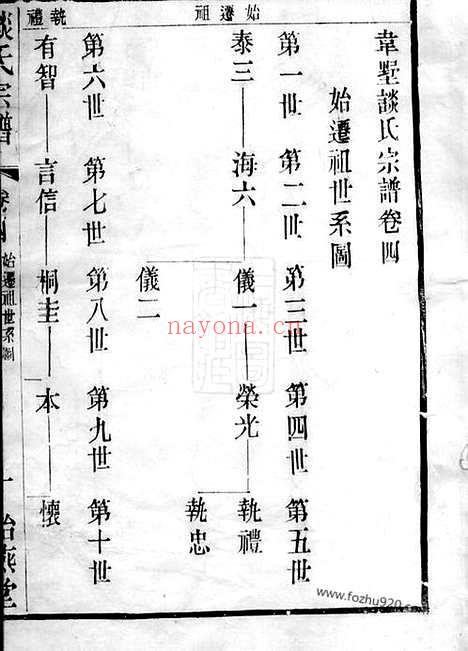 韋墅談氏宗譜卷四
始遷祖世系圖
始遷祖
第一世 第二世 第三世 第四世 第五世
泰三 海六 儀一 榮光 執禮
儀二 執忠
執禮
第六世 第七世 第八世 第九世 第十世
有智 言信 桐圭 本 懷
談氏宗譜 卷四 始遷祖世系圖 一 貽燕堂
nayona.cn
www.fozhu920.com